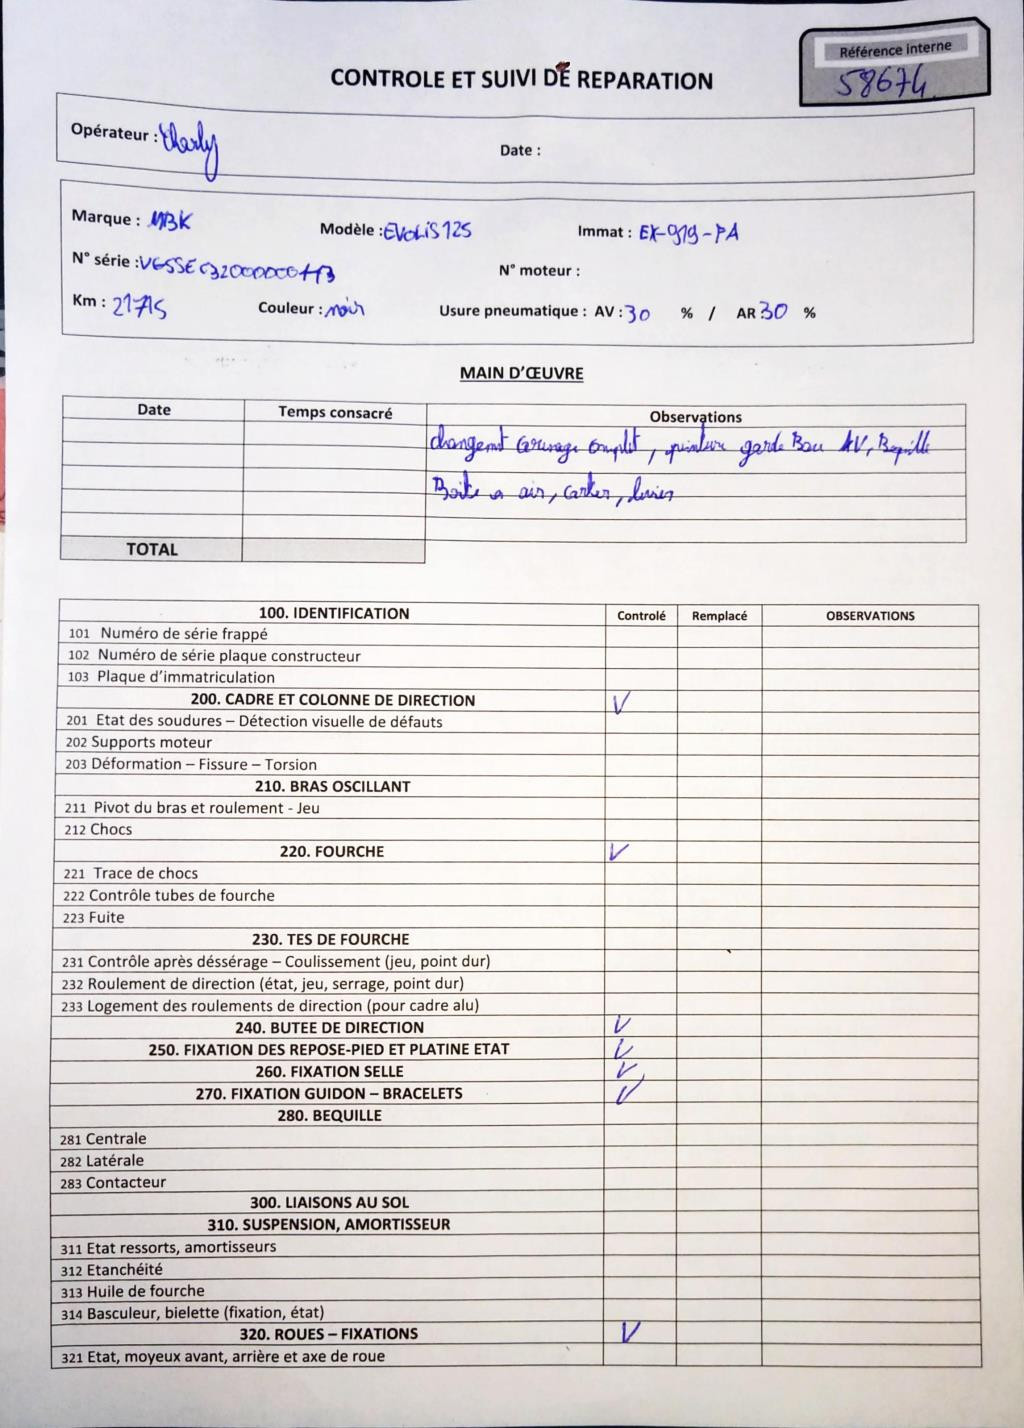 Référence interne
58674
CONTROLE ET SUIVI DE REPARATION
Opérateur : Charly
Date :
Marque : MBK Modèle : EVOLIS 125 Immat : EX-919-PA
N° série : N° moteur :
Km : Couleur : noir Usure pneumatique : AV : 30 % / AR 30 %
MAIN D'ŒUVRE
Date Temps consacré Observations
changemt complet, peinture garde Boue AV, Bequille
Boite a air, carter,
TOTAL
100. IDENTIFICATION Controlé Remplacé OBSERVATIONS
101 Numéro de série frappé
102 Numéro de série plaque constructeur
103 Plaque d'immatriculation
200. CADRE ET COLONNE DE DIRECTION V
201 Etat des soudures – Détection visuelle de défauts
202 Supports moteur
203 Déformation – Fissure – Torsion
210. BRAS OSCILLANT
211 Pivot du bras et roulement - Jeu
212 Chocs
220. FOURCHE V
221 Trace de chocs
222 Contrôle tubes de fourche
223 Fuite
230. TES DE FOURCHE
231 Contrôle après déssérage – Coulissement (jeu, point dur)
232 Roulement de direction (état, jeu, serrage, point dur)
233 Logement des roulements de direction (pour cadre alu)
240. BUTEE DE DIRECTION V
250. FIXATION DES REPOSE-PIED ET PLATINE ETAT V
260. FIXATION SELLE V
270. FIXATION GUIDON – BRACELETS V
280. BEQUILLE
281 Centrale
282 Latérale
283 Contacteur
300. LIAISONS AU SOL
310. SUSPENSION, AMORTISSEUR
311 Etat ressorts, amortisseurs
312 Etanchéité
313 Huile de fourche
314 Basculeur, bielette (fixation, état)
320. ROUES – FIXATIONS V
321 Etat, moyeux avant, arrière et axe de roue